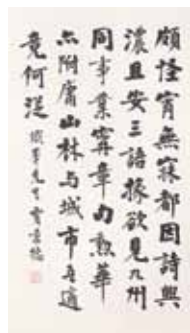 頗怪宵無寐都因詩興
濃且安三語掾欲見九州
同事業寗章句勲華
亦附庸山林与城市適
竟何從
先生